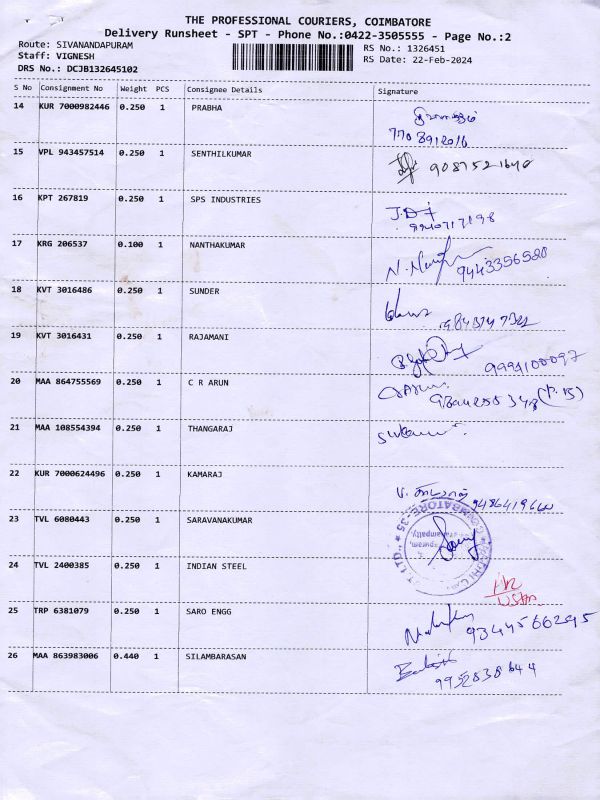 THE PROFESSIONAL COURIERS, COIMBATORE
Delivery Runsheet - SPT - Phone No.:0422-3505555 - Page No.:2
Route: SIVANANDAPURAM
RS No.: 1326451
Staff: VIGNESH
RS Date: 22-Feb-2024
DRS No.: DCJB132645102
S No Consignment No Weight PCS Consignee Details Signature
14 KUR 7000982446 0.250 1 PRABHA
15 VPL 943457514 0.250 1 SENTHILKUMAR
9087521640
16 KPT 267819 0.250 1 SPS INDUSTRIES
17 KRG 206537 0.100 1 NANTHAKUMAR
9443356580
18 KVT 3016486 0.250 1 SUNDER
19 KVT 3016431 0.250 1 RAJAMANI
9994100097
20 MAA 864755569 0.250 1 C R ARUN
21 MAA 108554394 0.250 1 THANGARAJ
22 KUR 7000624496 0.250 1 KAMARAJ
23 TVL 6080443 0.250 1 SARAVANAKUMAR
COIMBATORE-35
24 TVL 2400385 0.250 1 INDIAN STEEL
25 TRP 6381079 0.250 1 SARO ENGG
9344566295
26 MAA 863983006 0.440 1 SILAMBARASAN
9952838644